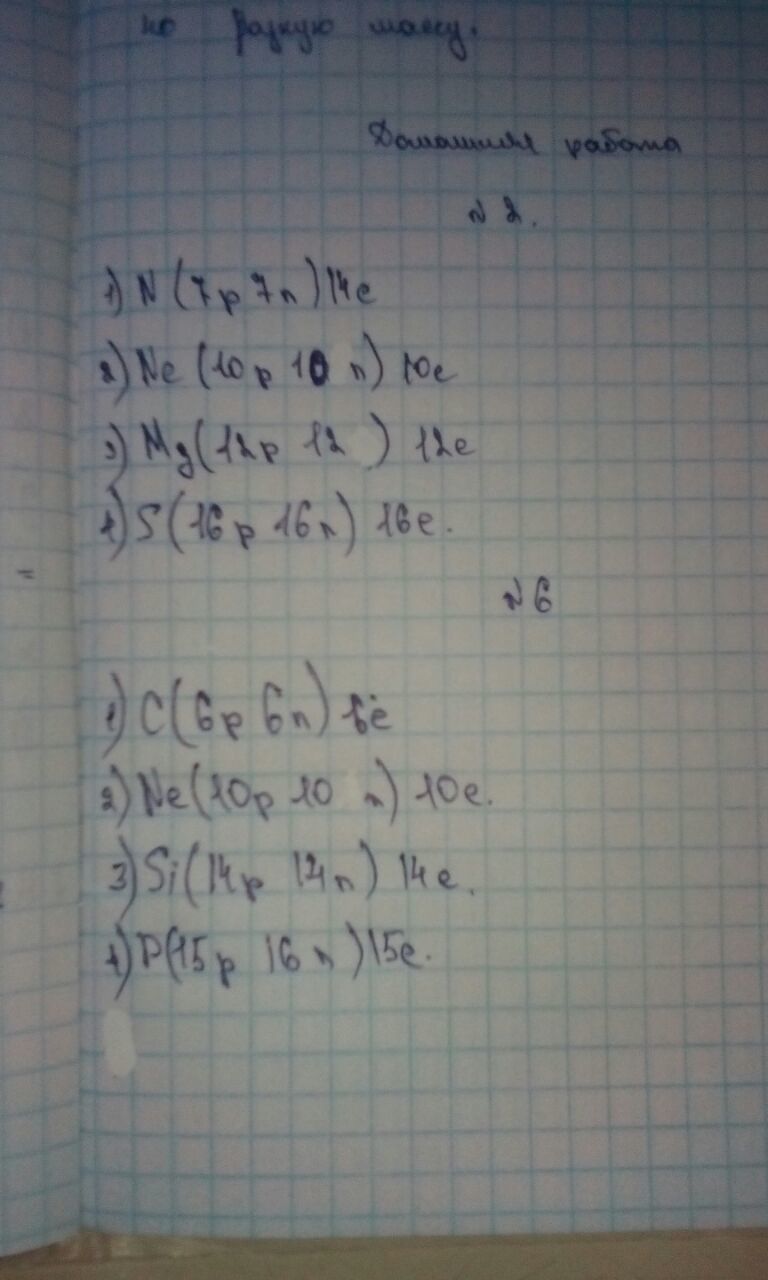 но разную массу.
Домашняя работа
№ 2.
1) N (7p 7n) 14e
2) Ne (10p 10 n) 10e
3) Mg (12p 12 ) 12e
4) S (16p 16n) 16e.
=
№ 6
1) C (6p 6n) 6e
2) Ne (10p 10 n) 10e.
3) Si (14p 14n) 14e.
4) P (15p 16n) 15e.